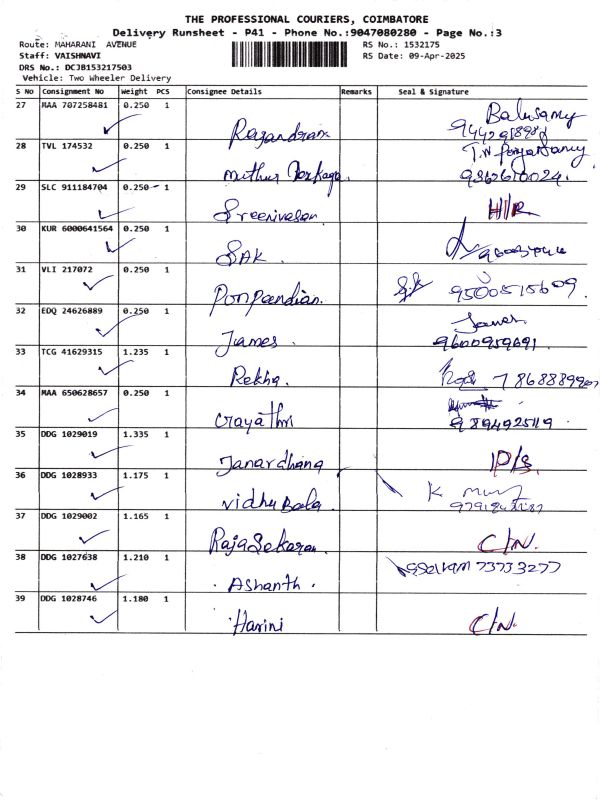 THE PROFESSIONAL COURIERS, COIMBATORE
Delivery Runsheet - P41 - Phone No.:9047080280 - Page No.:3
Route: MAHARANI AVENUE
RS No.: 1532175
Staff: VAISHNAVI
RS Date: 09-Apr-2025
DRS No.: DCJB153217503
Vehicle: Two Wheeler Delivery
S No Consignment No Weight PCS Consignee Details Remarks Seal & Signature
27 MAA 707258481 0.250 1
Rajandran Balusamy
28 TVL 174532 0.250 1
Muthu
29 SLC 911184704 0.250 1
Sreenivasan H/R
30 KUR 6000641564 0.250 1
SAK
31 VLI 217072 0.250 1
Ponpandian 9500515609
32 EDQ 24626889 0.250 1
James 9600959691
33 TCG 41629315 1.235 1
Rekha
34 MAA 650628657 0.250 1
Gayathri
35 DDG 1029019 1.335 1
Janardhana
36 DDG 1028933 1.175 1
Vidhu Bala K
37 DDG 1029002 1.165 1
RajaSekaran C/N.
38 DDG 1027638 1.210 1
Ashanth . 73733277
39 DDG 1028746 1.180 1
Harini C/N.